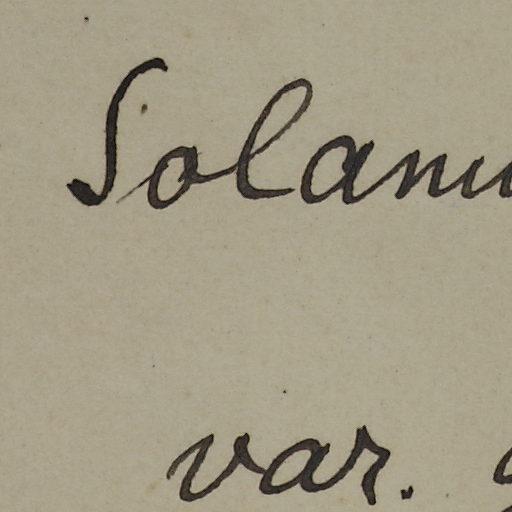 Solanu
var.